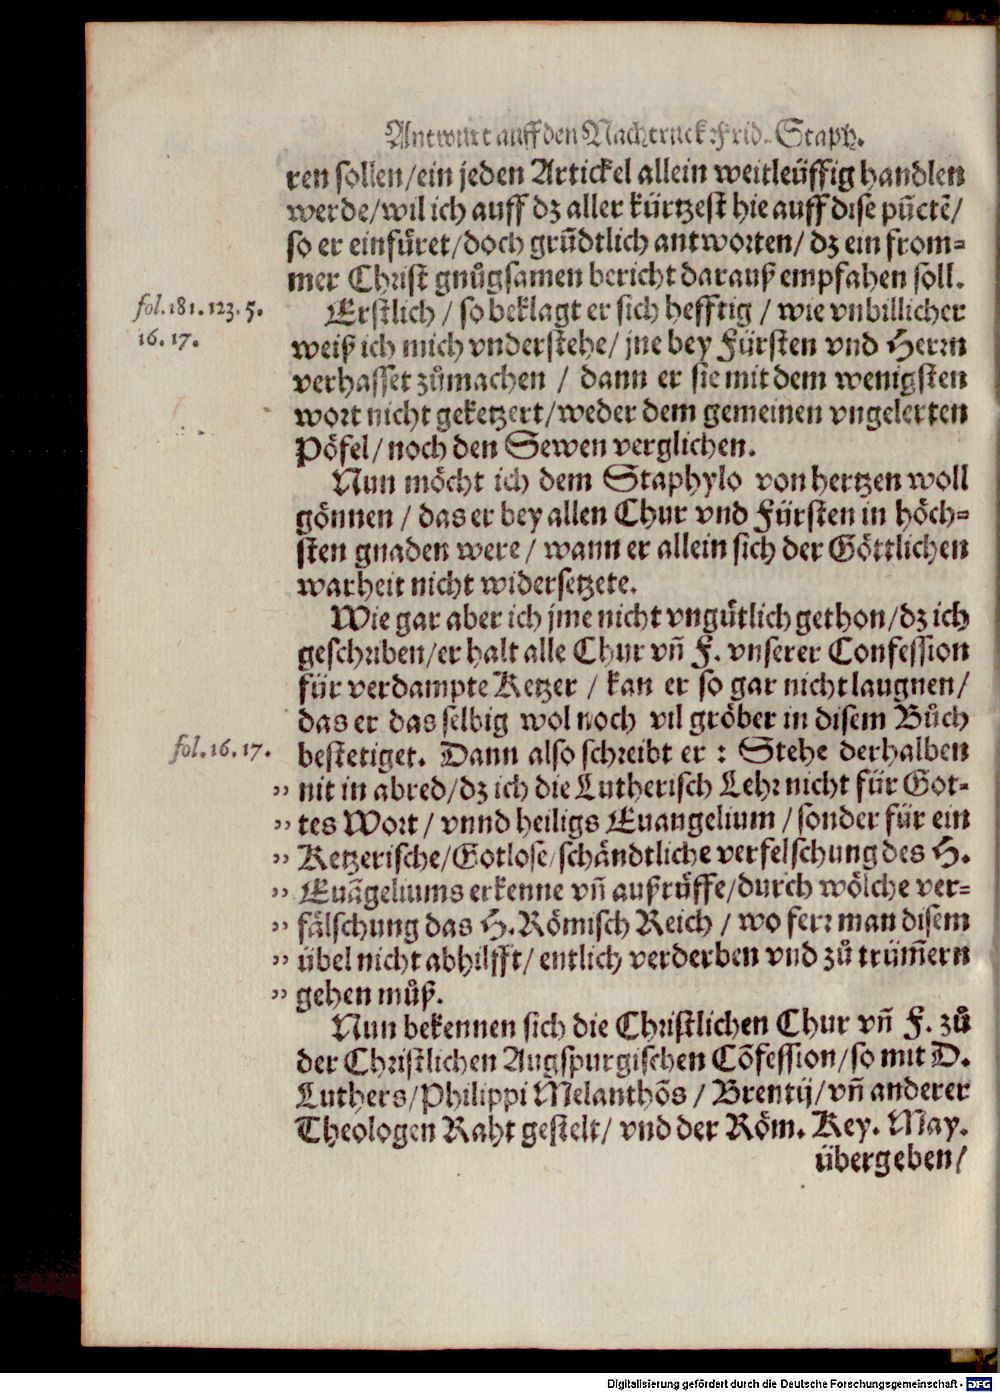 Antwurt auff den Nachtruck Frid. Staph.
ren sollen/ein jeden Artickel allein weitleüffig handlen
werde/wil ich auff dz aller kürtzest hie auff dise pũctẽ/
so er einfüret/doch grũdtlich antworten/ dz ein from=
mer Christ gnůgsamen bericht darauß empfahen soll.
fol.181.123.5.
16.17.
Erstlich / so beklagt er sich hefftig / wie vnbillicher
weiß ich mich vnderstehe/ jne bey Fürsten vnd Herrn
verhasset zůmachen / dann er sie mit dem wenigsten
wort nicht geketzert/weder dem gemeinen vngelerten
Pöfel/ noch den Sewen verglichen.
Nun möcht ich dem Staphylo von hertzen woll
gönnen / das er bey allen Chur vnd Fürsten in höch=
sten gnaden were/ wann er allein sich der Göttlichen
warheit nicht widersetzete.
Wie gar aber ich jme nicht vngütlich gethon/dz ich
geschriben/er halt alle Chur vñ F. vnserer Confession
für verdampte Ketzer / kan er so gar nicht laugnen/
das er das selbig wol noch vil gröber in disem Bůch
fol.16.17.
bestetiget. Dann also schreibt er : Stehe derhalben
„ nit in abred/dz ich die Lutherisch Lehr nicht für Got=
„ tes Wort/ vnnd heiligs Euangelium / sonder für ein
„ Ketzerische/Gotlose/schändtliche verfelschung des H.
„ Euãgeliums erkenne vñ außrüffe/durch wölche ver=
„ fälschung das H. Römisch Reich / wo ferr man disem
„ übel nicht abhilfft/ entlich verderben vnd zů trüm̃ern
„ gehen můß.
Nun bekennen sich die Christlichen Chur vñ F. zů
der Christlichen Augspurgischen Cõfession/so mit D.
Luthers/Philippi Melanthõs / Brentij/vñ anderer
Theologen Raht gestelt/ vnd der Röm. Key. May.
übergeben/
Digitalisierung gefördert durch die Deutsche Forschungsgemeinschaft - DFG